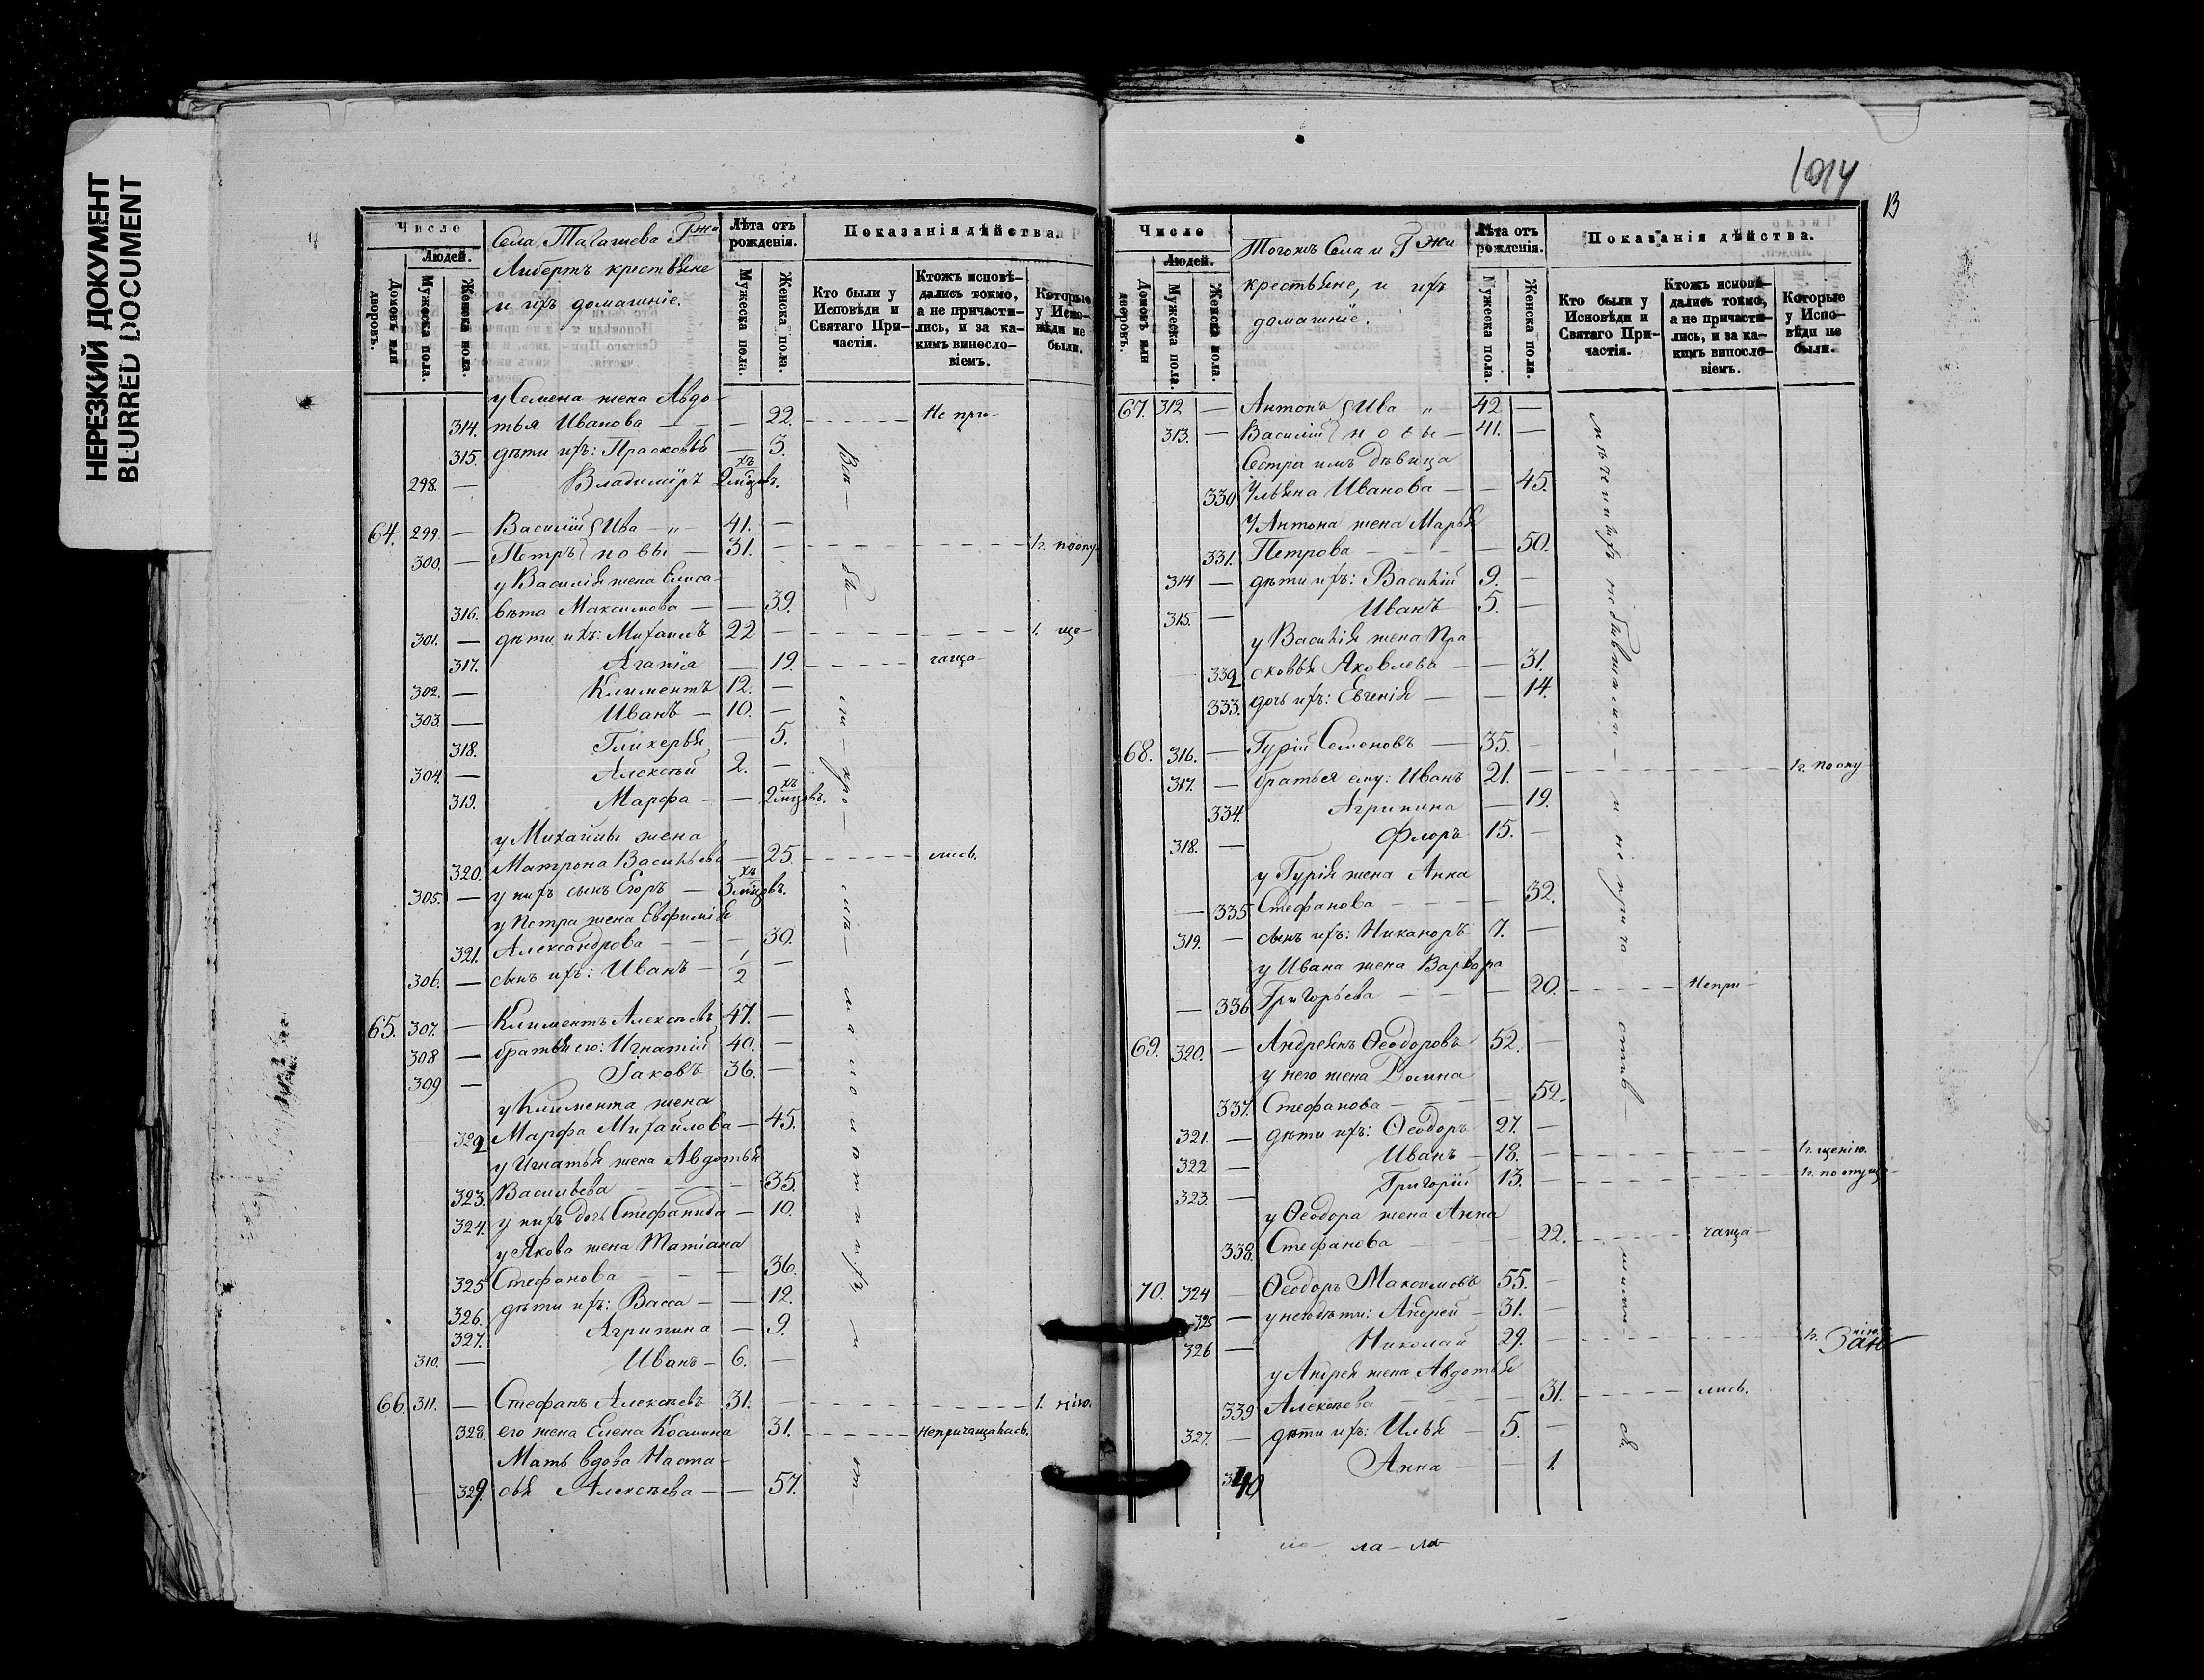 НЕРЕЗКИЙ ДОКУМЕНТ
BLURRED DOCUMENT
Число
Людей.
Домовъ или дворовъ.
Мужеска пола.
Женска пола.
Села
Либертъ крестьяне
и ихъ домашніе.
Лѣта отъ рожденія.
Мужеска пола.
Женска пола.
Показанія дѣйства.
Кто были у Исповѣди и Святаго Причастія.
Ктожъ исповѣдались токмо, а не причастились, и за какимъ винословіемъ.
Которые у Исповѣди не были.
у Семена жена Авдо-
314. тья Иванова — — 22. Не при-
315. дѣти ихъ: Прасковья — 3.
298. — Владиміръ 2 мцовъ.
64. 299. — Василій Ива — „ — 41. —
300. — Петръ новы — 31. — 1. по опу-
у Василія жена Елиса-
316. вета Максимова — — 39.
301. — дѣти ихъ: Михаилъ 22 — 1. ще-
317. Агапія — 19. чаща-
302. — Климентъ 12. —
303. — Иванъ — 10. —
318. Гликерья — 5.
304. — Алексѣй 2. —
319. Марфа — — 2 мцовъ.
у Михаилы жена
320. Матрона Васильева — 25. лись.
305. — у нихъ сынъ Егоръ — 3 мцовъ.
у Петра жена Евфимія
321. Александрова — — — 30.
306. — сынъ ихъ: Иванъ — 1/2 —
65. 307. — Климентъ Алексѣевъ 47. —
308 — братья его: Игнатій 40. —
309 — Іаковъ 36. —
у Климента жена
322 Марфа Михайлова — 45.
у Игнатья жена Авдотья
323. Васильева — — — 35.
324. у нихъ дочь Стефанида — 10.
у Якова жена Татіана
325 Стефанова — — — 36.
326. дѣти ихъ: Васса — — 12.
327. Агрипина — 9.
310. — Иванъ — 6. —
66. 311. — Стефанъ Алексѣевъ 31. — 1. нію.
328. его жена Елена Космина 31. Не причащалась.
Мать вдова Наста-
329. сья Алексѣева — — 57.
1014
13
Число
Людей.
Домовъ или дворовъ.
Мужеска пола.
Женска пола.
Тогожъ Села и
крестьяне, и ихъ
домашніе.
Лѣта отъ рожденія.
Мужеска пола.
Женска пола.
Показанія дѣйства.
Кто были у Исповѣди и Святаго Причастія.
Ктожъ исповѣдались токмо, а не причастились, и за какимъ винословіемъ.
Которые у Исповѣди не были.
67. 312 — Антонъ Ива „ 42 —
313. — Василій новы — 41. —
Сестра имъ дѣвица
330 Ульяна Иванова — — 45.
У Антона жена Марья
331. Петрова — — — — 50.
314 — дѣти ихъ: Василій 9. —
315. — Иванъ 5. —
у Василія жена Пра-
332 сковья Яковлева — — 31.
333. дочь ихъ: Евгенія — — 14.
68. 316. — Гурій Семеновъ — 35. —
317. — братья ему: Иванъ 21. — 1. по опу
334. Агрипина — 19.
318. — Флоръ 15. —
у Гурія жена Анна
335 Стефанова — — — — 32.
319. — сынъ ихъ: Никаноръ 7. —
у Ивана жена Варвара
336 Григорьева — — — 20. Не при-
69. 320. — Андреянъ Ѳеодоровъ 52. —
у него жена Домна
337. Стефанова — — — — 52.
321. — дѣти ихъ: Ѳеодоръ 27. —
322 — Иванъ — 18. — 1. щенію.
323. — Григорій 13. — 1. по опуще-
у Ѳеодора жена Анна
338. Стефанова — 22. чаща-
70. 324 — Ѳеодоръ Максимовъ 55. —
325 — у него дѣти: Андрей — 31. —
326 — Николай 29. — 1. нію.
у Андрея жена Авдотья
339 Алексѣева — — — — 31. лись.
327. — дѣти ихъ: Илья — 5. —
340 Анна — — 1.
ла — ла